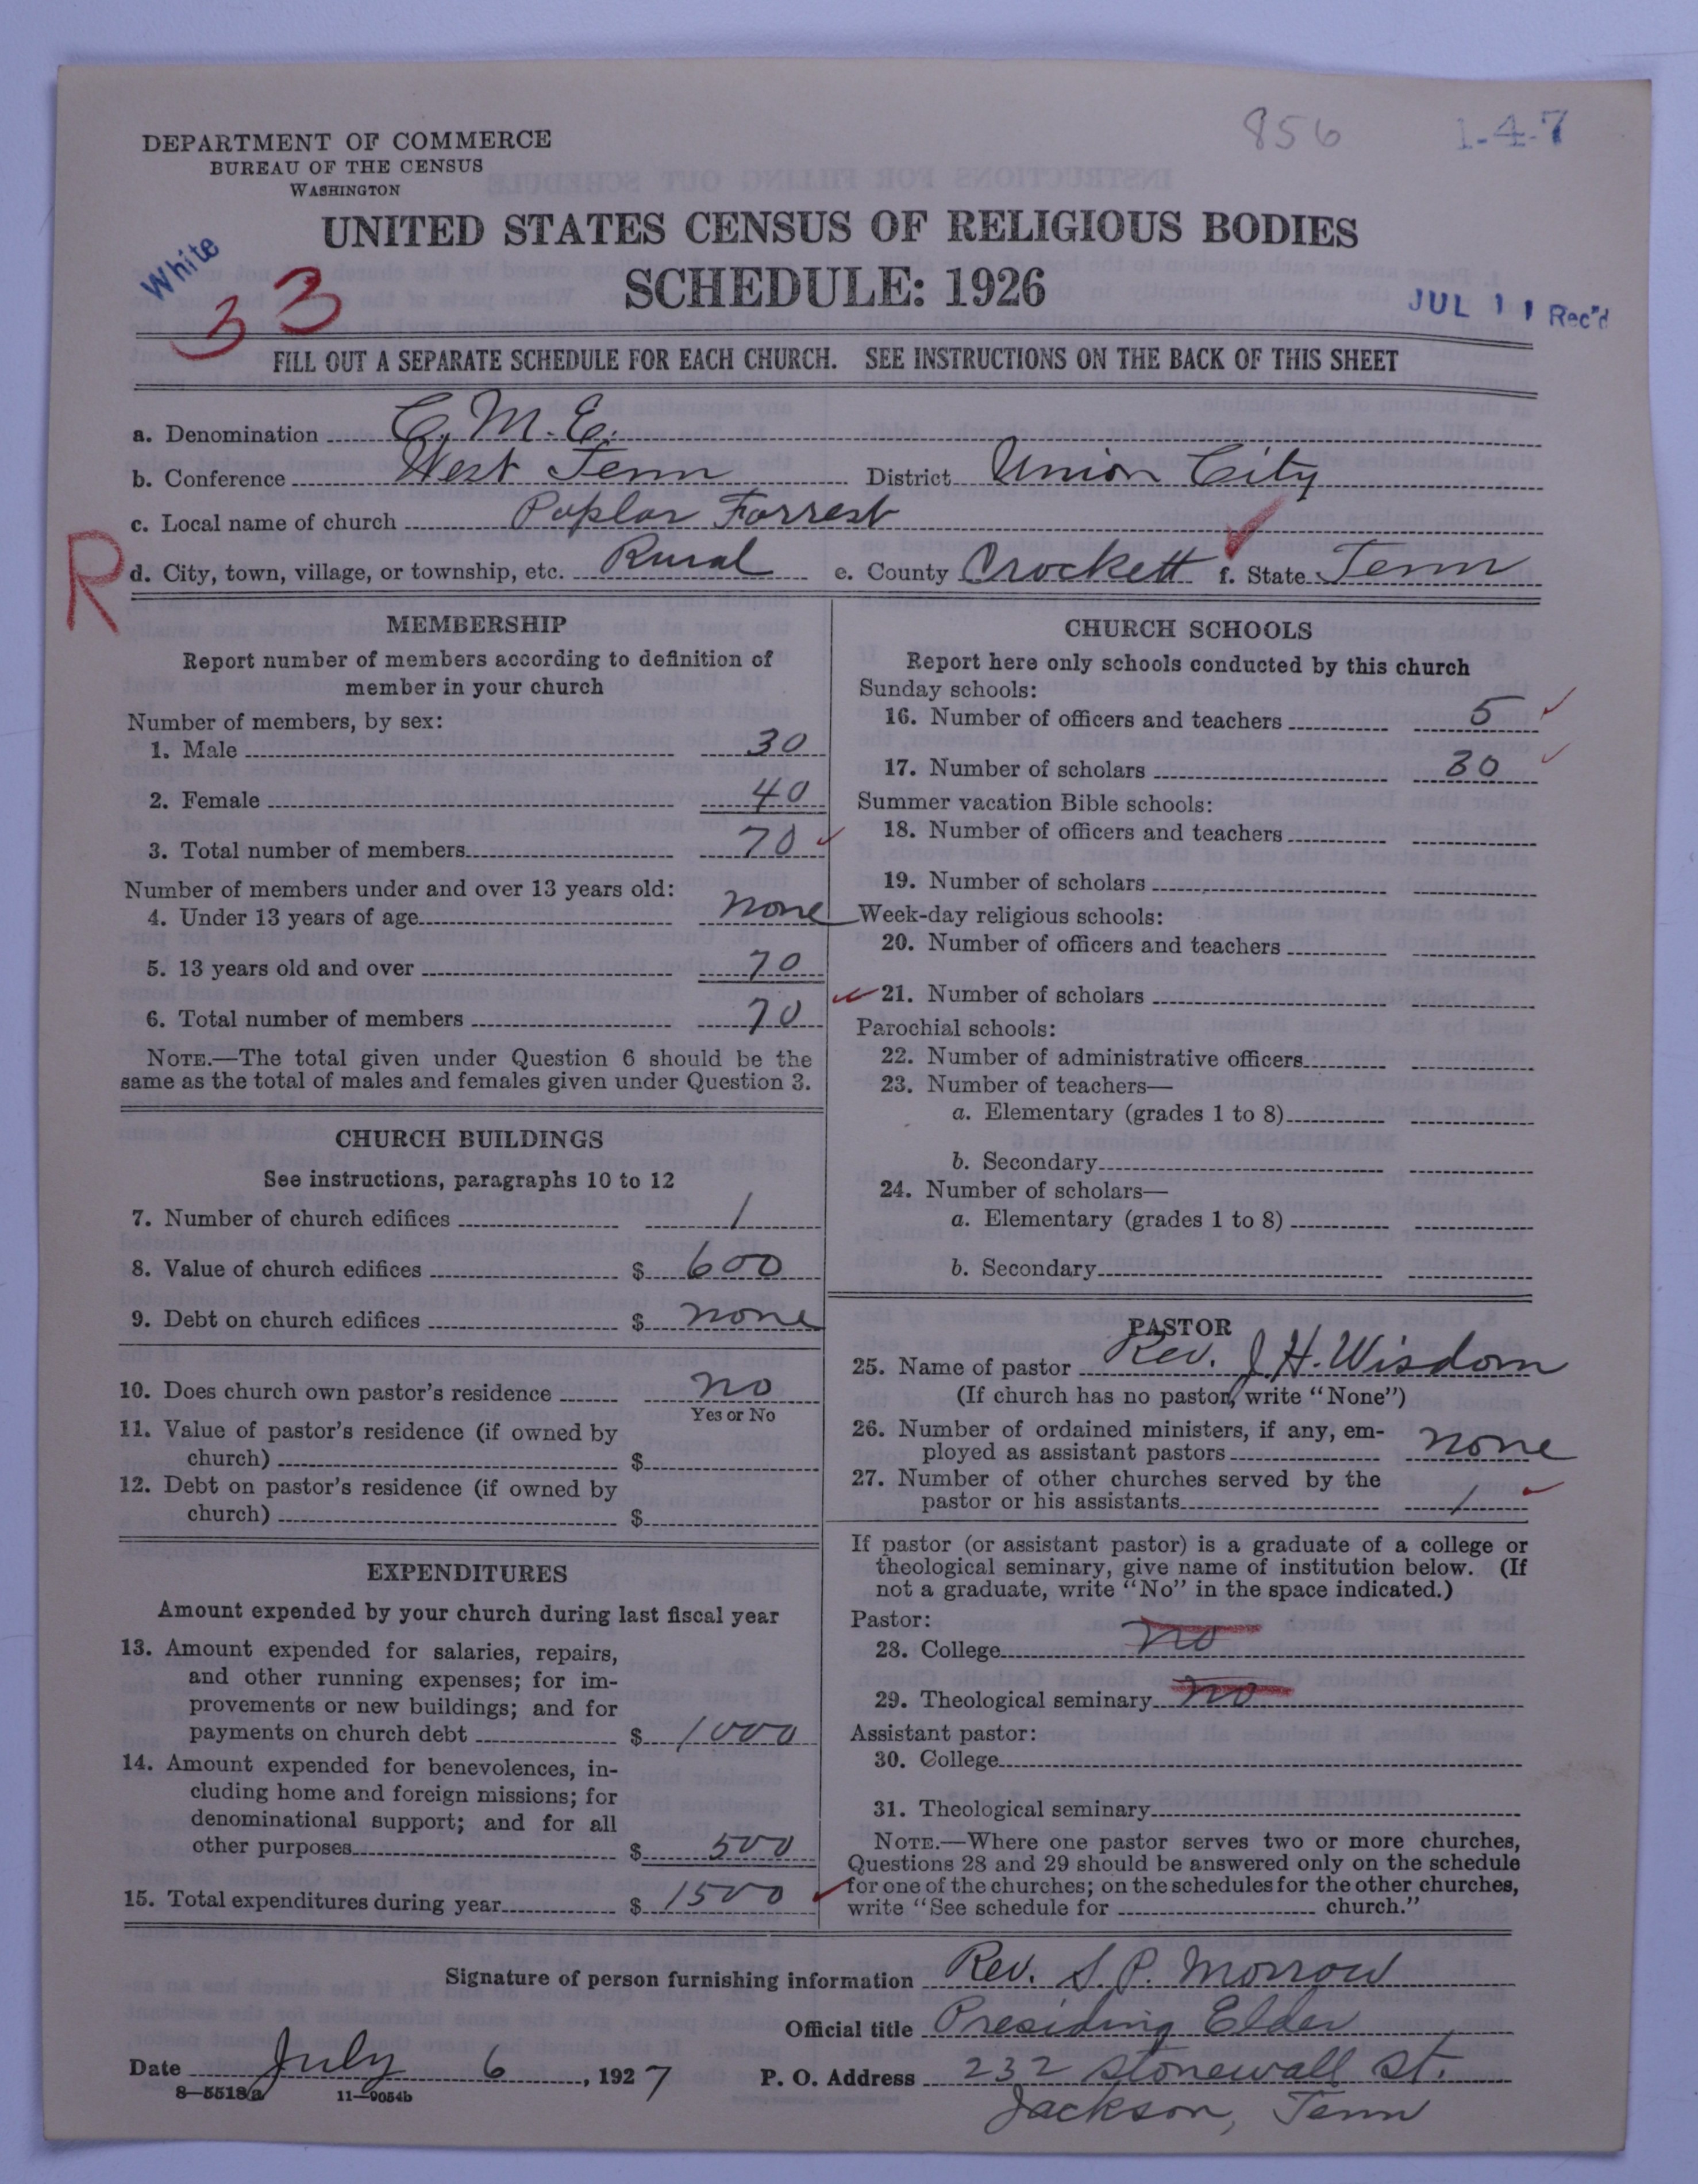 856
1-4-7
DEPARTMENT OF COMMERCE
BUREAU OF THE CENSUS
WASHINGTON
UNITED STATES CENSUS OF RELIGIOUS BODIES
SCHEDULE: 1926
White
33
JUL 11 Rec'd
FILL OUT A SEPARATE SCHEDULE FOR EACH CHURCH. SEE INSTRUCTIONS ON THE BACK OF THIS SHEET
a. Denomination C. M. E.
b. Conference West Tenn District Union City
c. Local name of church Poplar Forrest
R
d. City, town, village, or township, etc. Rural e. County Crockett f. State Tenn
MEMBERSHIP
Report number of members according to definition of
member in your church
Number of members, by sex:
1. Male 30
2. Female 40
3. Total number of members 70
Number of members under and over 13 years old:
4. Under 13 years of age none
5. 13 years old and over 70
6. Total number of members 70
NOTE.—The total given under Question 6 should be the
same as the total of males and females given under Question 3.
CHURCH BUILDINGS
See instructions, paragraphs 10 to 12
7. Number of church edifices 1
8. Value of church edifices $ 600
9. Debt on church edifices $ none
10. Does church own pastor's residence no
Yes or No
11. Value of pastor's residence (if owned by
church) $
12. Debt on pastor's residence (if owned by
church) $
EXPENDITURES
Amount expended by your church during last fiscal year
13. Amount expended for salaries, repairs,
and other running expenses; for im-
provements or new buildings; and for
payments on church debt $ 1000
14. Amount expended for benevolences, in-
cluding home and foreign missions; for
denominational support; and for all
other purposes $ 500
15. Total expenditures during year $ 1500
CHURCH SCHOOLS
Report here only schools conducted by this church
Sunday schools:
16. Number of officers and teachers 5
17. Number of scholars 30
Summer vacation Bible schools:
18. Number of officers and teachers
19. Number of scholars
Week-day religious schools:
20. Number of officers and teachers
21. Number of scholars
Parochial schools:
22. Number of administrative officers
23. Number of teachers—
a. Elementary (grades 1 to 8)
b. Secondary
24. Number of scholars—
a. Elementary (grades 1 to 8)
b. Secondary
PASTOR
25. Name of pastor Rev. J. H. Wisdom
(If church has no pastor, write "None")
26. Number of ordained ministers, if any, em-
ployed as assistant pastors none
27. Number of other churches served by the
pastor or his assistants 1
If pastor (or assistant pastor) is a graduate of a college or
theological seminary, give name of institution below. (If
not a graduate, write "No" in the space indicated.)
Pastor:
28. College no
29. Theological seminary no
Assistant pastor:
30. College
31. Theological seminary
NOTE.—Where one pastor serves two or more churches,
Questions 28 and 29 should be answered only on the schedule
for one of the churches; on the schedules for the other churches,
write "See schedule for church."
Signature of person furnishing information Rev. S. P. Morrow
Official title Presiding Elder
Date July 6, 1927 P. O. Address 232 Stonewall St.
8—5518a 11—9054b
Jackson, Tenn